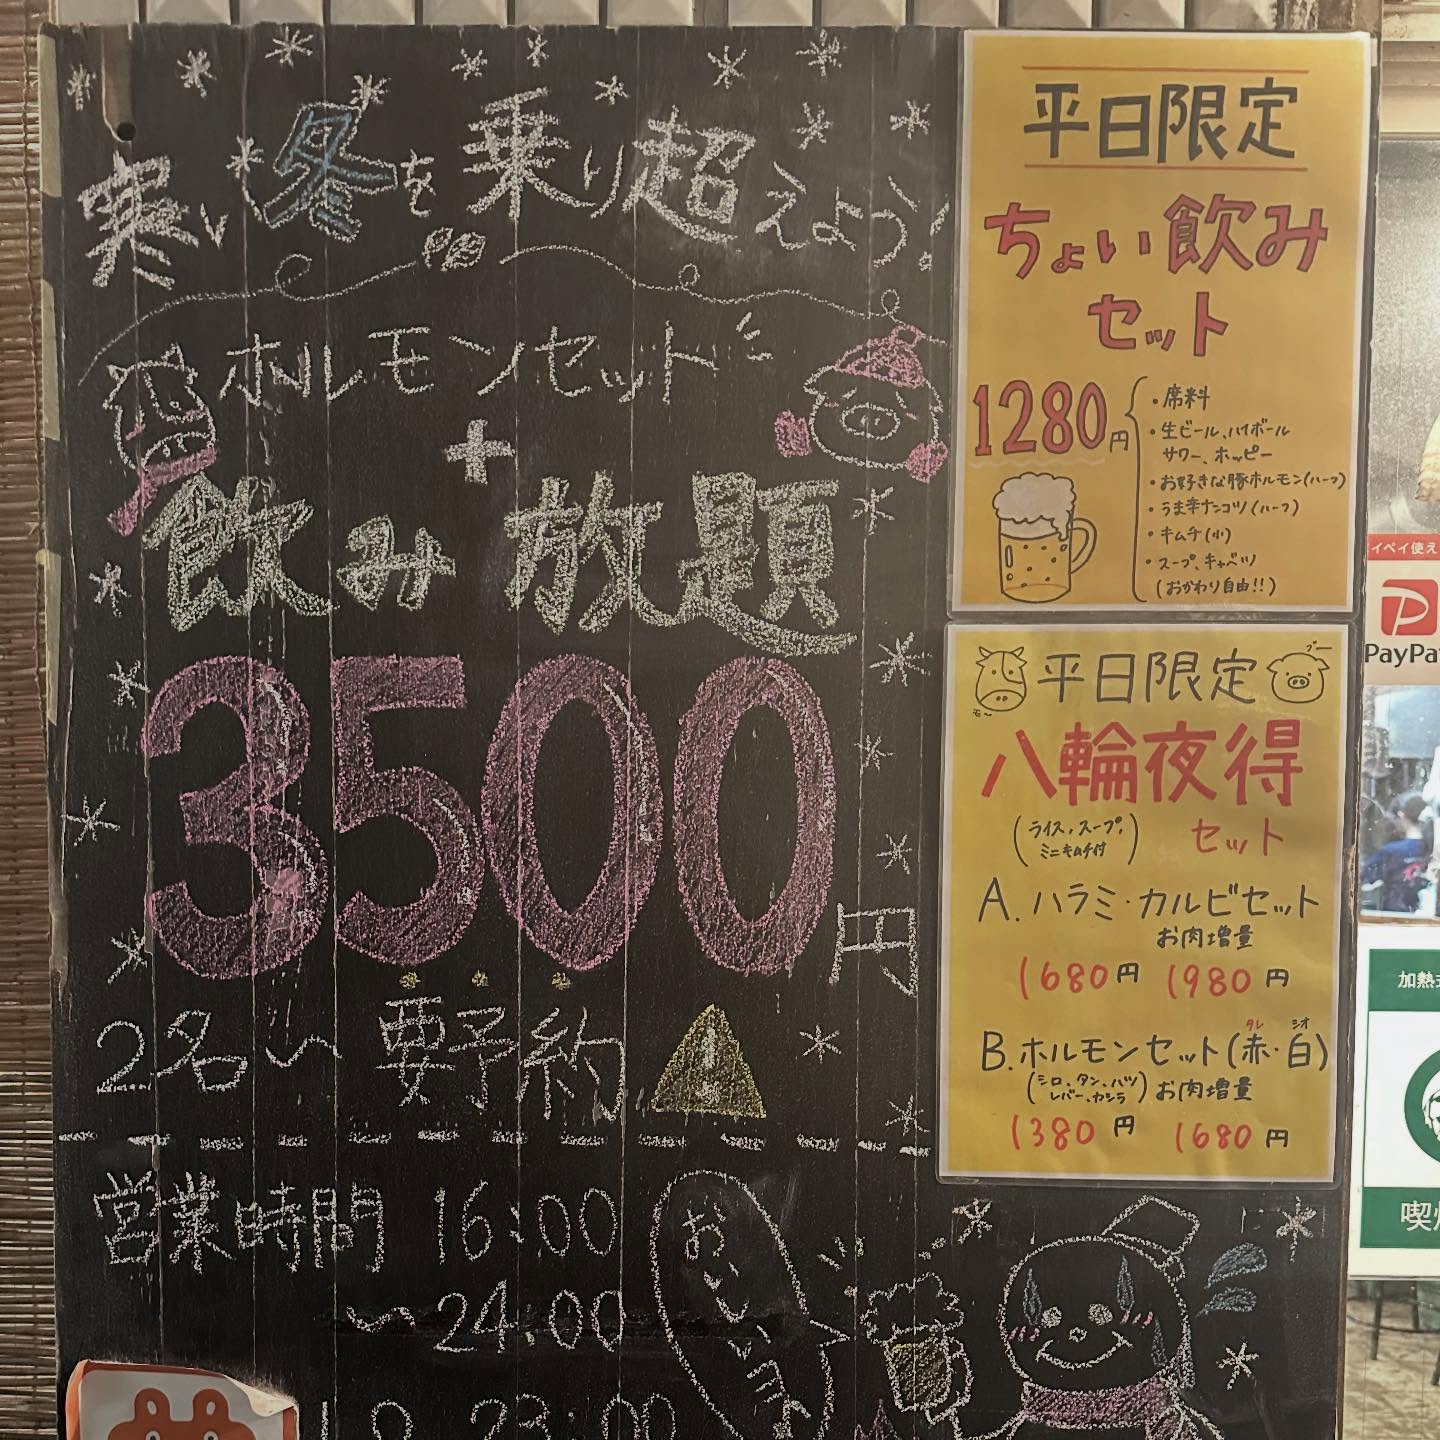 寒い冬を乗り超えよう!
ホルモンセット
+
飲み放題
3500円
2名〜要予約
営業時間 16:00
〜24:00
23:00
おいしいよ
平日限定
ちょい飲み
セット
1280円
・席料
・生ビール、ハイボール
サワー、ホッピー
・お好きな豚ホルモン(ハーフ)
・うま辛ナンコツ(ハーフ)
・キムチ(小)
・スープ、キャベツ
(おかわり自由!!)
平日限定
モ〜
ブー
八輪夜得
(ライス、スープ、
ミニキムチ付)
セット
A.ハラミ・カルビセット
お肉増量
1680円 1980円
タレ シオ
B.ホルモンセット(赤・白)
(シロ、タン、ハツ
レバー、カシラ)
お肉増量
1380円 1680円
PayPa